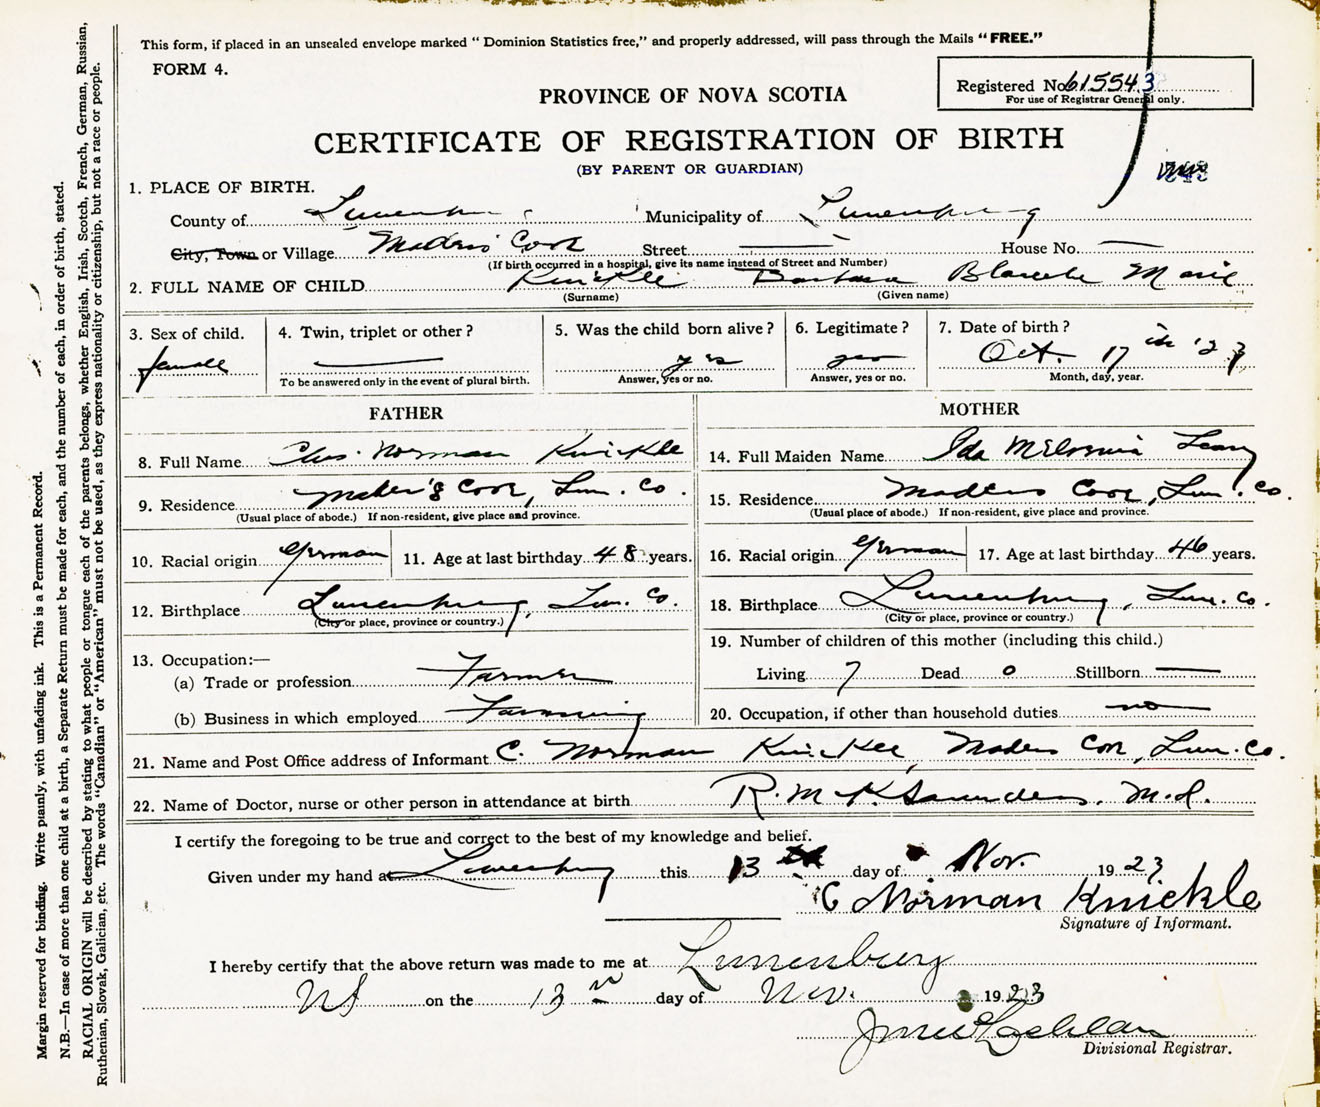 This form, if placed in an unsealed envelope marked “ Dominion Statistics free,” and properly addressed, will pass through the Mails “FREE.”
FORM 4.
Registered No. 615543
For use of Registrar General only.
PROVINCE OF NOVA SCOTIA
CERTIFICATE OF REGISTRATION OF BIRTH
(BY PARENT OR GUARDIAN)
1. PLACE OF BIRTH.
County of Lunenburg Municipality of Lunenburg
City, Town or Village Maders Cove Street — House No. —
(If birth occurred in a hospital, give its name instead of Street and Number)
2. FULL NAME OF CHILD Knickle Barbara Blanche Marie
(Surname) (Given name)
3. Sex of child. 4. Twin, triplet or other? 5. Was the child born alive? 6. Legitimate? 7. Date of birth?
female — yes yes Oct. 17 '23
To be answered only in the event of plural birth. Answer, yes or no. Answer, yes or no. Month, day, year.
FATHER
8. Full Name Chas. Norman Knickle
9. Residence Mader's Cove, Lun. Co.
(Usual place of abode.) If non-resident, give place and province.
10. Racial origin German 11. Age at last birthday 48 years.
12. Birthplace Lunenburg, Lun. Co.
(City or place, province or country.)
13. Occupation:—
(a) Trade or profession Farmer
(b) Business in which employed Farming
MOTHER
14. Full Maiden Name Ida
15. Residence Maders Cove, Lun. Co.
(Usual place of abode.) If non-resident, give place and province.
16. Racial origin German 17. Age at last birthday 46 years.
18. Birthplace Lunenburg, Lun. Co.
(City or place, province or country.)
19. Number of children of this mother (including this child.)
Living 7 Dead 0 Stillborn —
20. Occupation, if other than household duties no
21. Name and Post Office address of Informant C. Norman Knickle, Maders Cove, Lun. Co.
22. Name of Doctor, nurse or other person in attendance at birth R. McK. Saunders, M.D.
I certify the foregoing to be true and correct to the best of my knowledge and belief.
Given under my hand at Lunenburg this 13 th day of Nov. 1923
C Norman Knickle
Signature of Informant.
I hereby certify that the above return was made to me at Lunenburg
NS on the 13 day of Nov. 1923
Divisional Registrar.
Margin reserved for binding. Write plainly, with unfading ink. This is a Permanent Record.
N.B.—In case of more than one child at a birth, a Separate Return must be made for each, and the number of each, in order of birth, stated.
RACIAL ORIGIN will be described by stating to what people or tongue each of the parents belongs, whether English, Irish, Scotch, French, German, Russian,
Ruthenian, Slovak, Galician, etc. The words “Canadian” or “American” must not be used, as they express nationality or citizenship, but not a race or people.